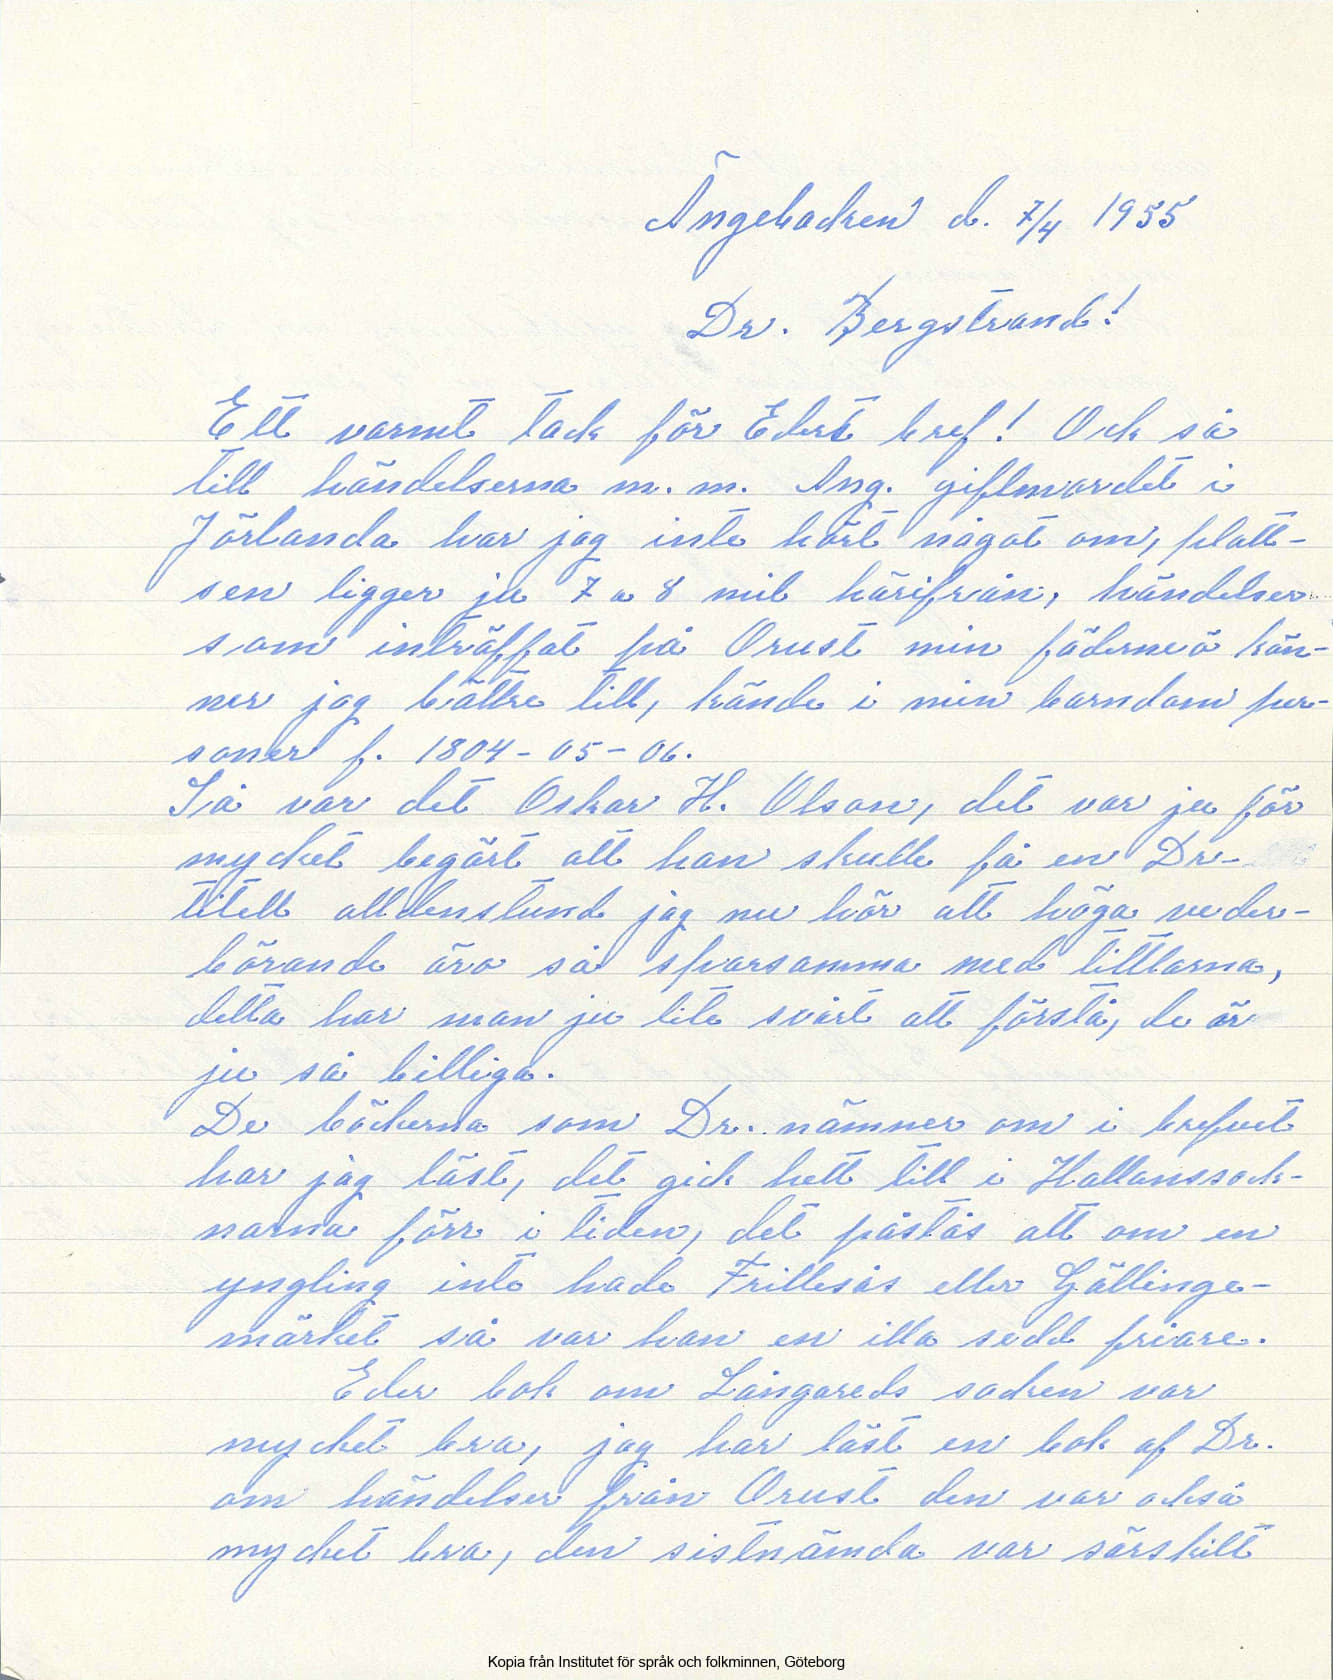 Ängebacken d. 7/4 1955
Dr. Bergstrand!
Ett varmt tack för Edert bref! Ock så
till händelserna m. m. Ang. giftmordet i
Jörlanda har jag inte hört något om, platt-
sen ligger ju 7 a 8 mil härifrån, händelser
som inträffat på Orust min föderneö kän-
ner jag bättre till, kände i min barndom per-
soner f. 1804 - 05 - 06.
Så var det Oskar H. Olson, det var ju för
mycket begärt att han skulle få en Dr-
titell alldenstund jag nu hör att höga veder-
börande äro så sparsamma med titlarna,
detta har man ju lite svårt att förstå, de är
ju så billiga.
De böckerna som Dr. nämner om i brefvet
har jag läst, det gick hett till i Hallanssock-
narna förr i tiden, det påstås att om en
yngling inte hade Frillesås eller Gällinge-
märket så var han en illa sedd friare.
Eder bok om Långareds socken var
mycket bra, jag har läst en bok af Dr.
om händelser från Orust den var också
mycket bra, den sistnämda var särskilt
Kopia från Institutet för språk och folkminnen, Göteborg